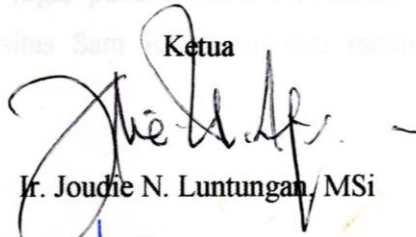 Ketua
Ir. Joudie N. Luntungan, MSi